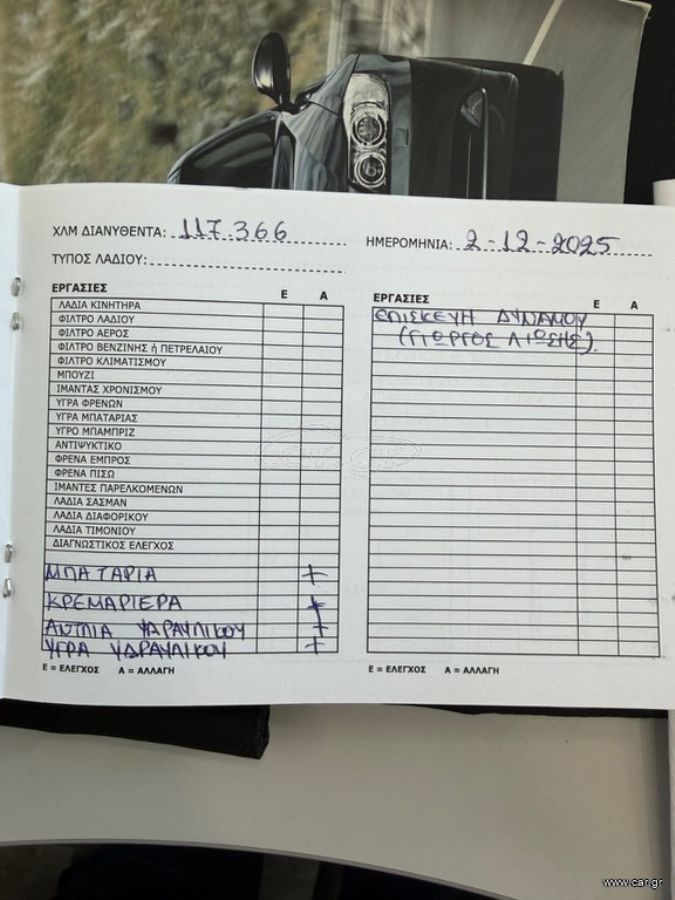 www.car.gr
ΧΛΜ ΔΙΑΝΥΘΕΝΤΑ: 117.366
ΗΜΕΡΟΜΗΝΙΑ: 2-12-2025
ΤΥΠΟΣ ΛΑΔΙΟΥ:
ΕΡΓΑΣΙΕΣ Ε Α
ΛΑΔΙΑ ΚΙΝΗΤΗΡΑ
ΦΙΛΤΡΟ ΛΑΔΙΟΥ
ΦΙΛΤΡΟ ΑΕΡΟΣ
ΦΙΛΤΡΟ ΒΕΝΖΙΝΗΣ ή ΠΕΤΡΕΛΑΙΟΥ
ΦΙΛΤΡΟ ΚΛΙΜΑΤΙΣΜΟΥ
ΜΠΟΥΖΙ
ΙΜΑΝΤΑΣ ΧΡΟΝΙΣΜΟΥ
ΥΓΡΑ ΦΡΕΝΩΝ
ΥΓΡΑ ΜΠΑΤΑΡΙΑΣ
ΥΓΡΟ ΜΠΑΜΠΡΙΖ
ΑΝΤΙΨΥΚΤΙΚΟ
ΦΡΕΝΑ ΕΜΠΡΟΣ
ΦΡΕΝΑ ΠΙΣΩ
ΙΜΑΝΤΕΣ ΠΑΡΕΛΚΟΜΕΝΩΝ
ΛΑΔΙΑ ΣΑΣΜΑΝ
ΛΑΔΙΑ ΔΙΑΦΟΡΙΚΟΥ
ΛΑΔΙΑ ΤΙΜΟΝΙΟΥ
ΔΙΑΓΝΩΣΤΙΚΟΣ ΕΛΕΓΧΟΣ
ΜΠΑΤΑΡΙΑ +
ΚΡΕΜΑΡΙΕΡΑ +
ΑΝΤΛΙΑ ΥΔΡΑΥΛΙΚΟΥ +
ΥΓΡΑ ΥΔΡΑΥΛΙΚΟΥ +
Ε = ΕΛΕΓΧΟΣ Α = ΑΛΛΑΓΗ
ΕΡΓΑΣΙΕΣ Ε Α
ΕΠΙΣΚΕΥΗ ΔΥΝΑΜΟΥ
(ΓΙΩΡΓΟΣ ΛΙΩΣΗΣ).
Ε = ΕΛΕΓΧΟΣ Α = ΑΛΛΑΓΗ
car.gr
www.car.gr